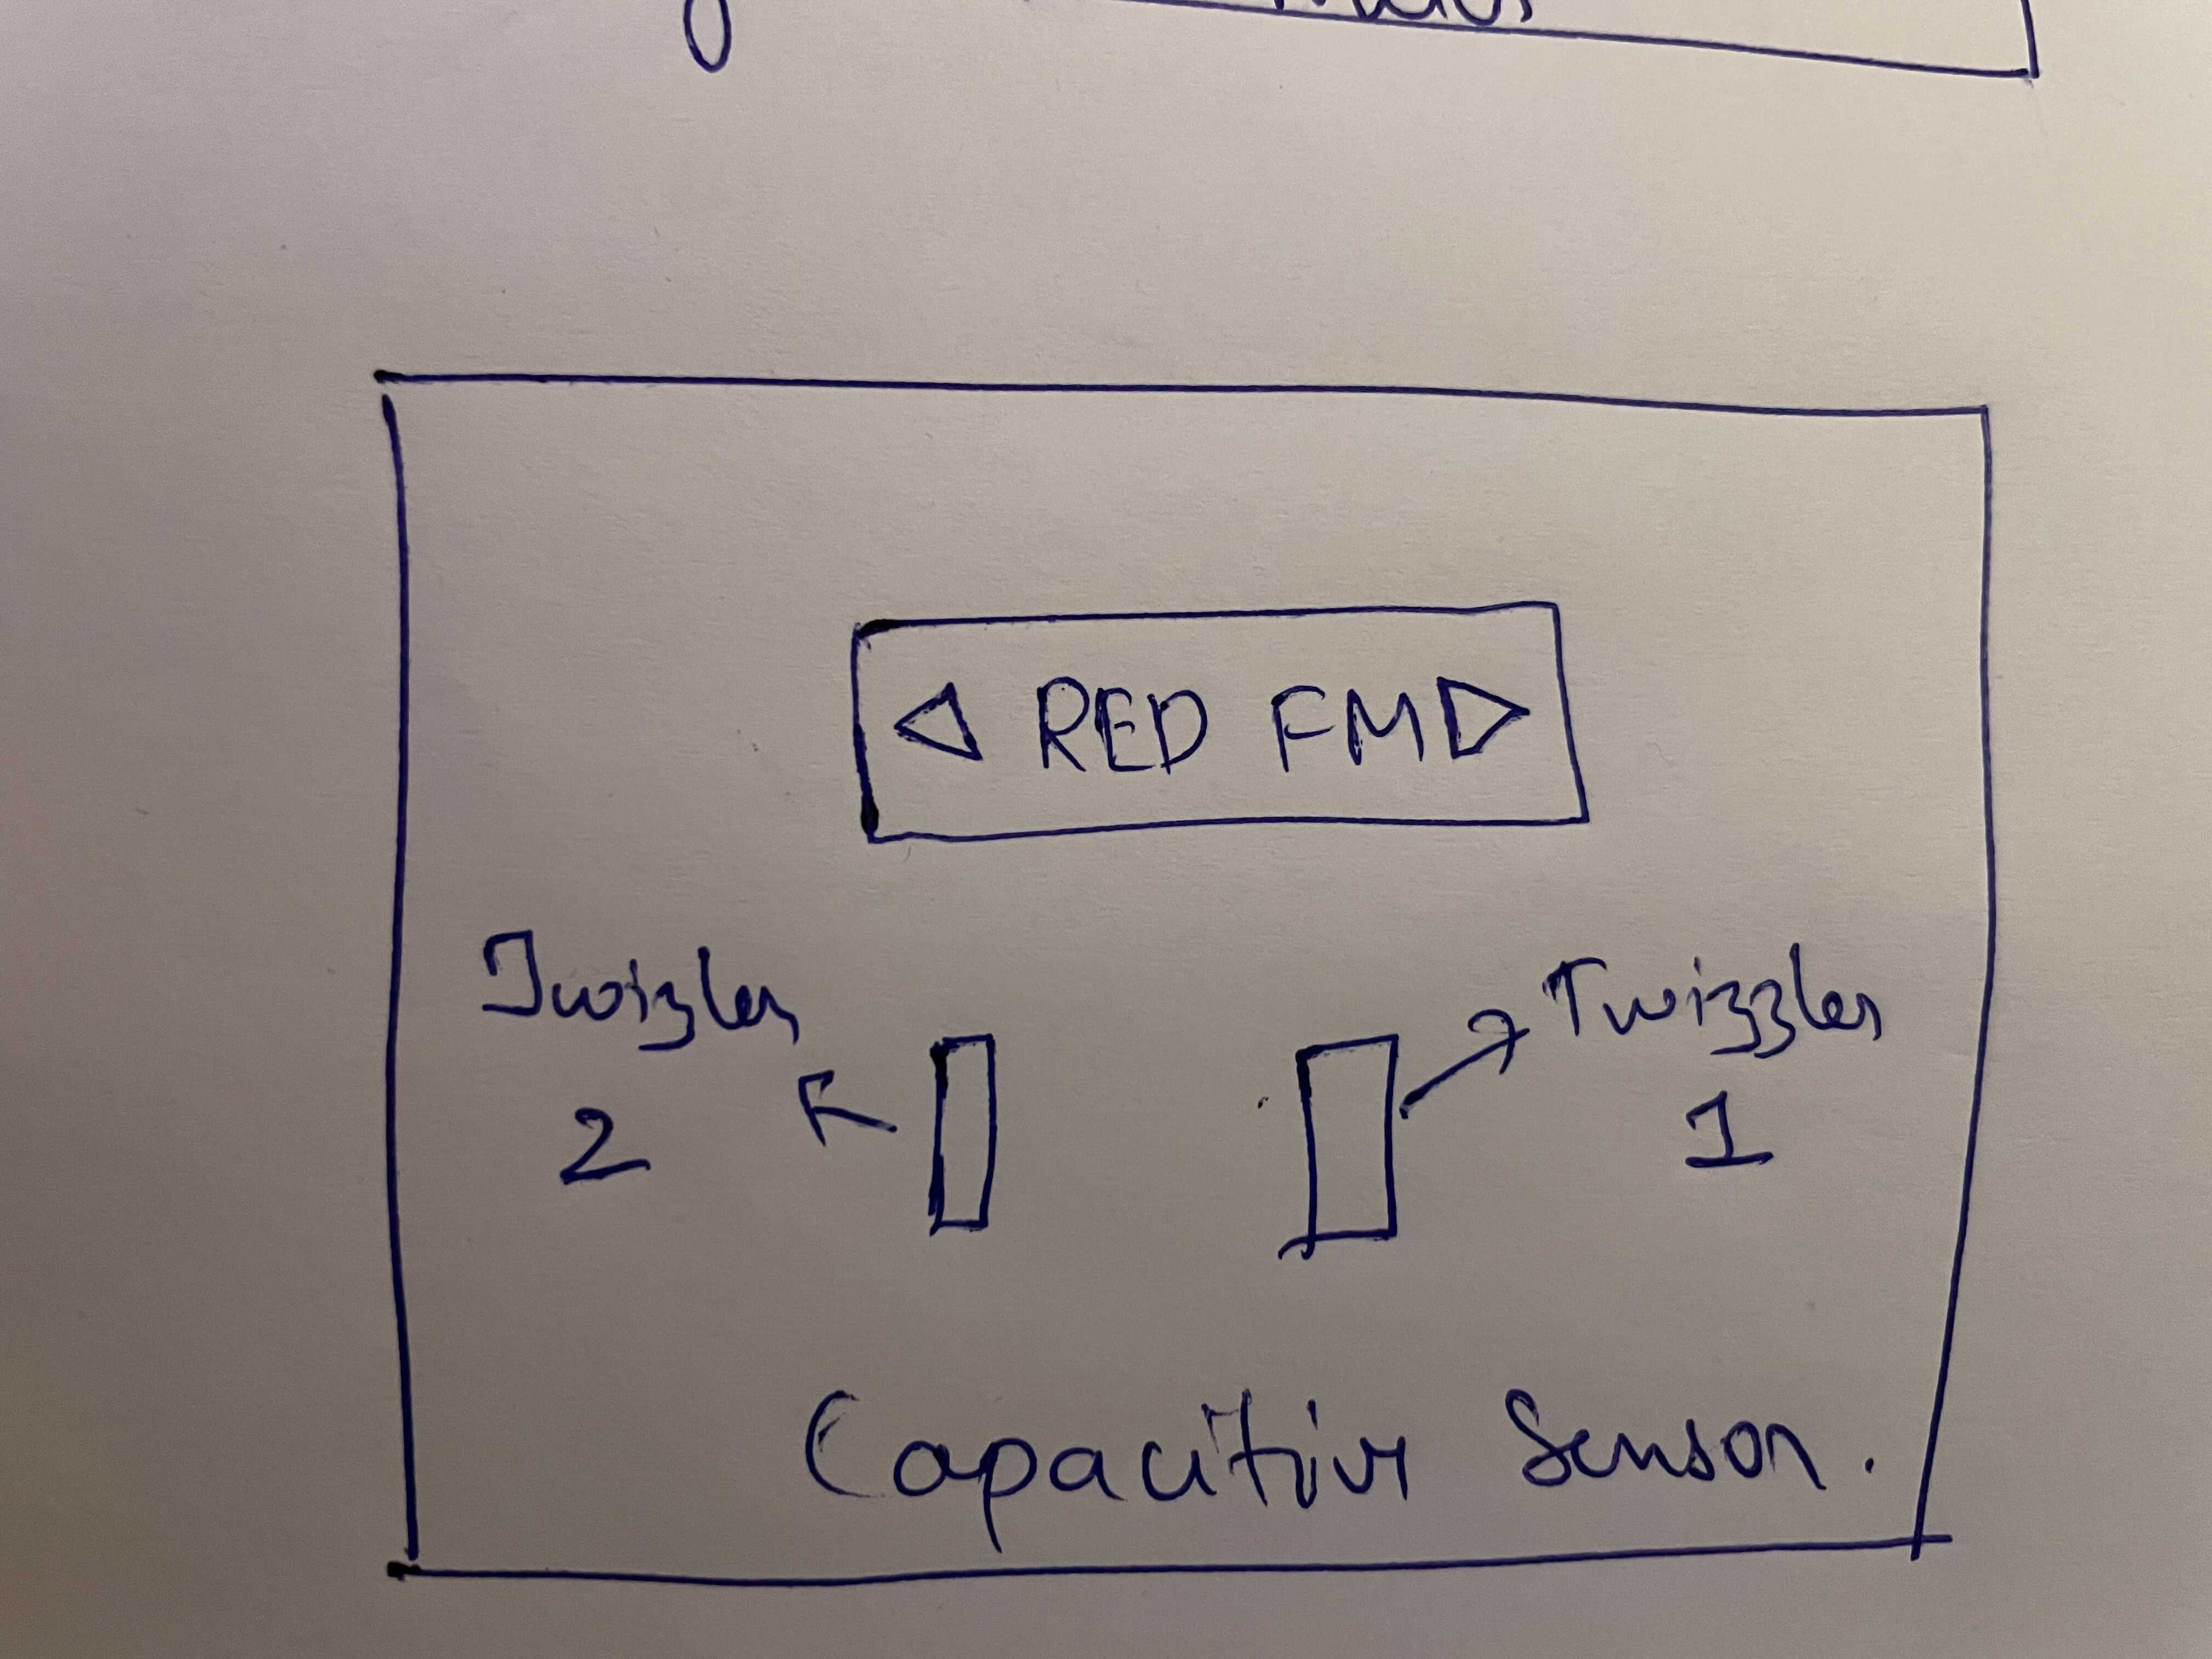 RED FM
Twizzlers
Twizlers
2
1
Capacitive Sensor.